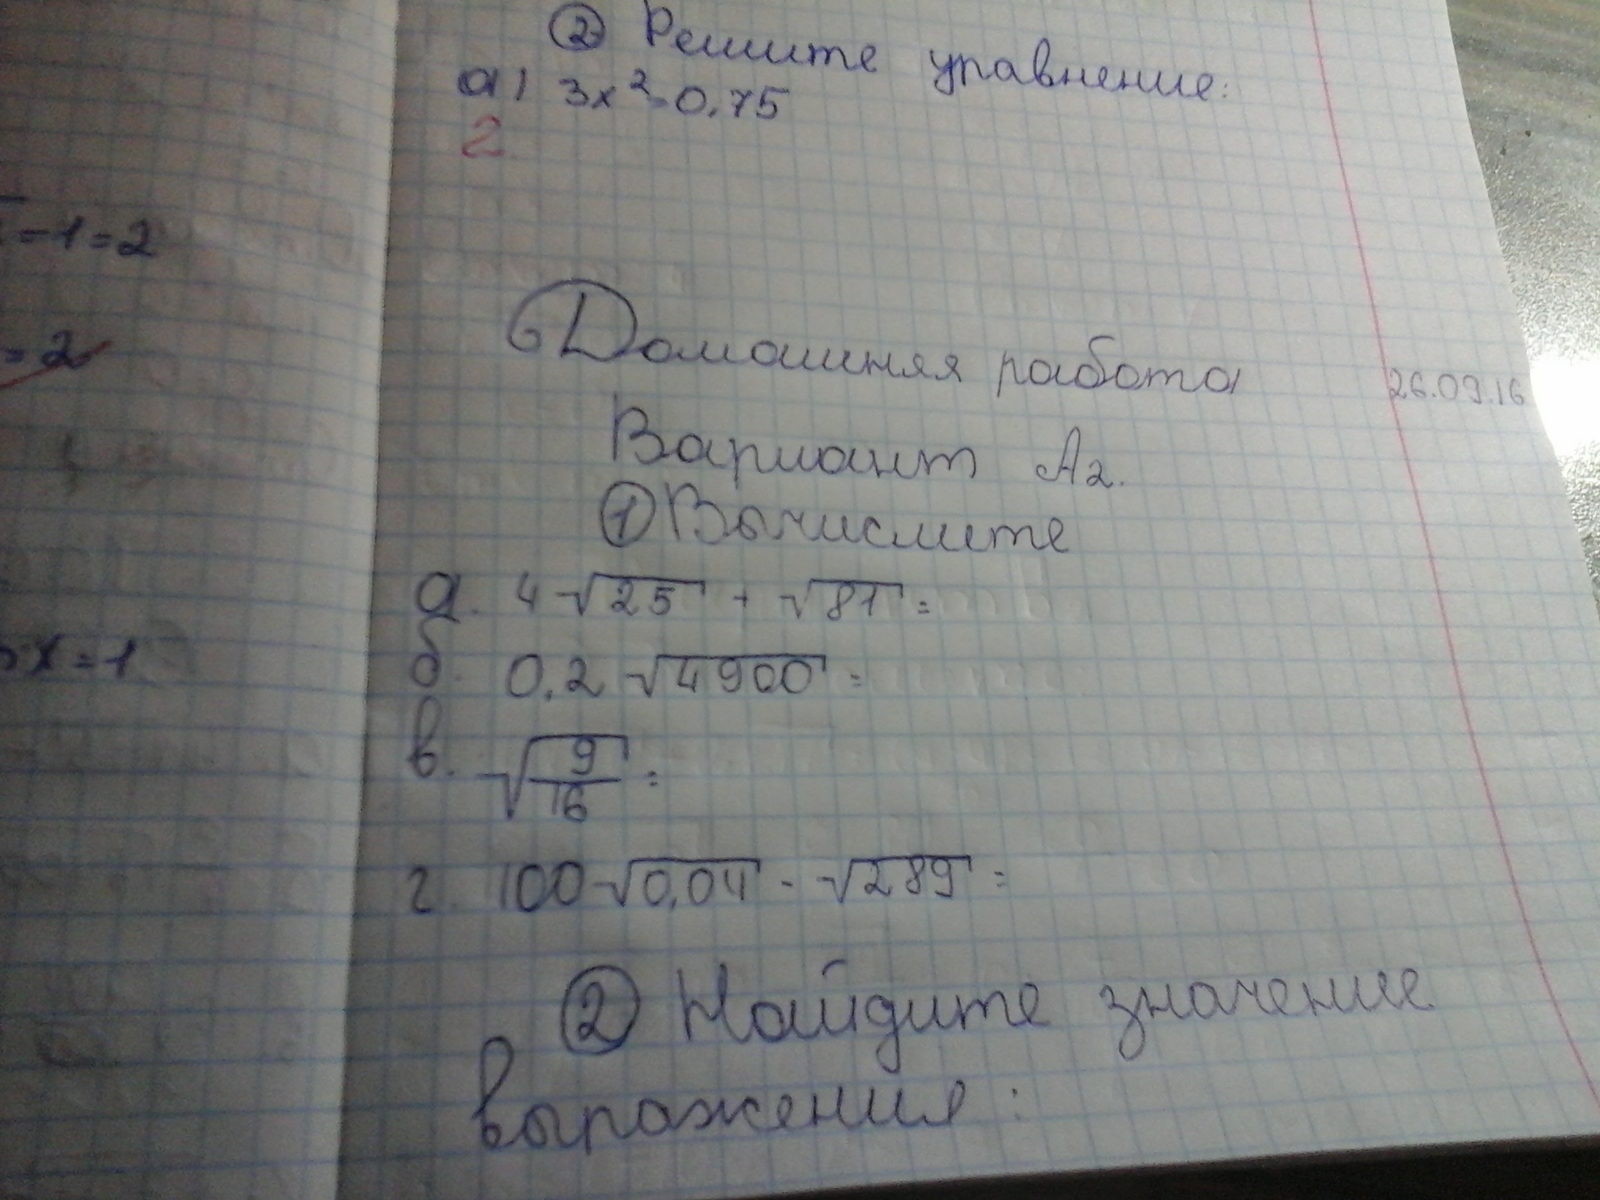 ② Решите уравнение:
а) 3x²=0,75
2
-1=2
=2
Домашняя работа
26.09.16
Вариант А2.
① Вычислите
а. 4√25 + √81 =
x=1
б. 0,2 √4900 =
в. √(9/16) =
г. 100 √0,04 - √289 =
② Найдите значение
выражения: